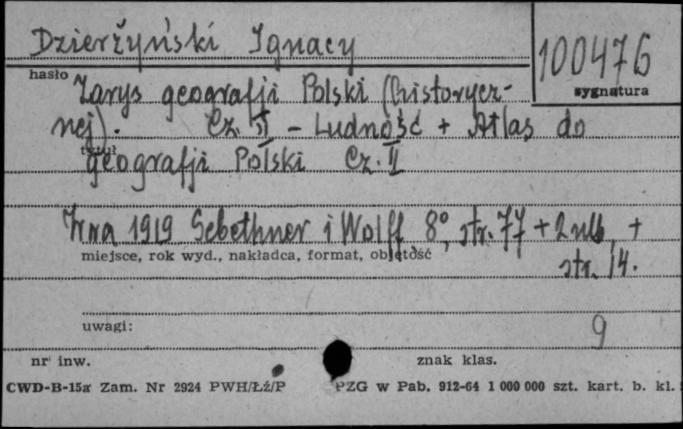 Dzierżyński Ignacy
100476
hasło
sygnatura
Zarys geografji Polski (historycz-
nej). Cz. II - Ludność + Atlas do
tytuł
geografji Polski Cz. II
Wwa 1919 Gebethner i Wolff 8°, str. 77 + 2 nlb +
miejsce, rok wyd., nakładca, format, objętość
str. 14.
uwagi:
9
nr inw.
znak klas.
CWD-B-15a Zam. Nr 2924 PWH/Łź/P PZG w Pab. 912-64 1 000 000 szt. kart. b. kl.